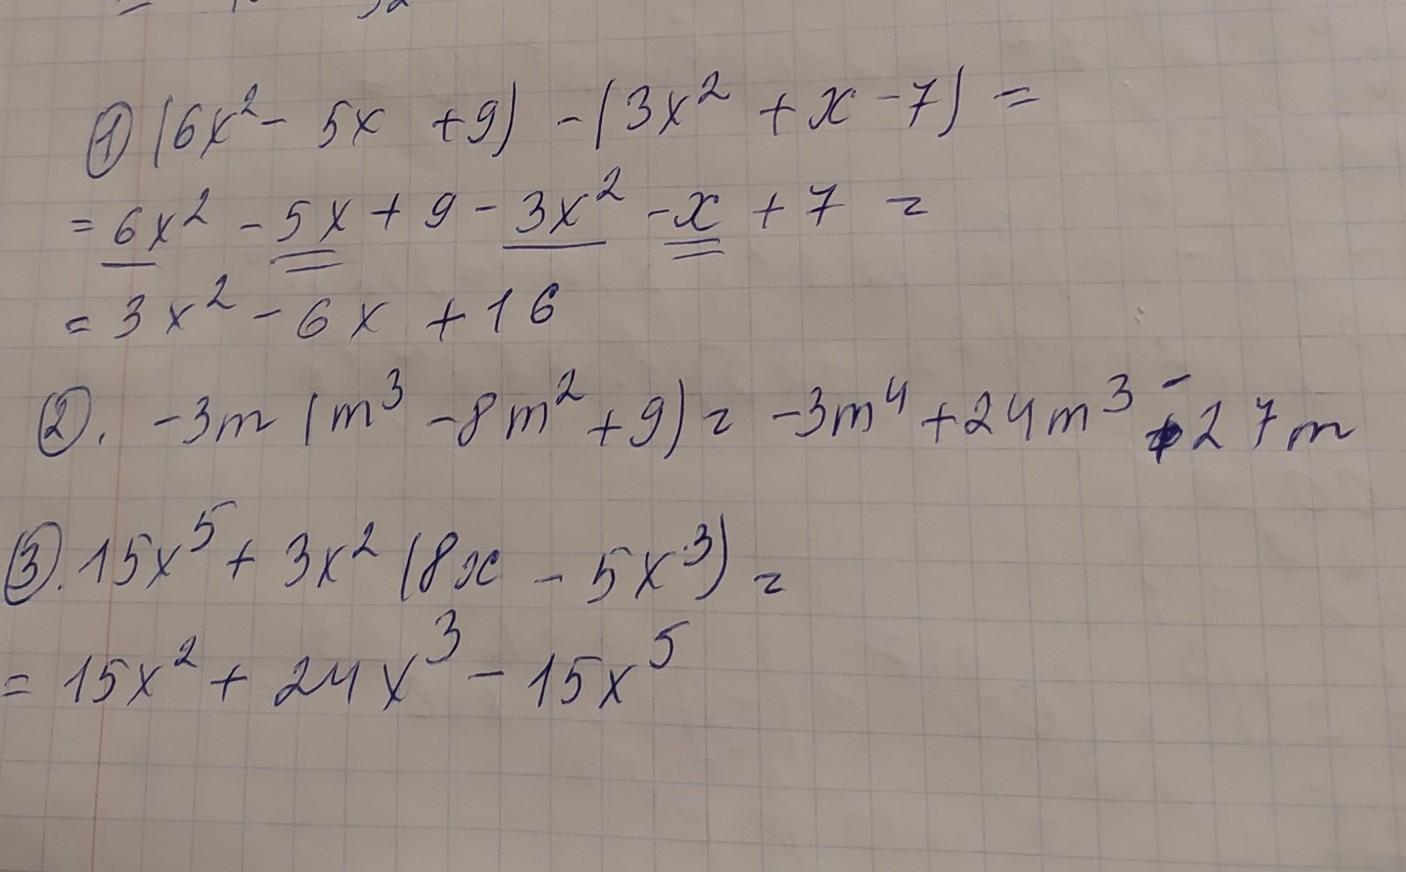 ① (6x² - 5x + 9) - (3x² + x - 7) =
= 6x² - 5x + 9 - 3x² - x + 7 =
= 3x² - 6x + 16
②. -3m (m³ - 8m² + 9) = -3m⁴ + 24m³ - 27m
③. 15x⁵ + 3x² (8x - 5x³) =
= 15x² + 24x³ - 15x⁵